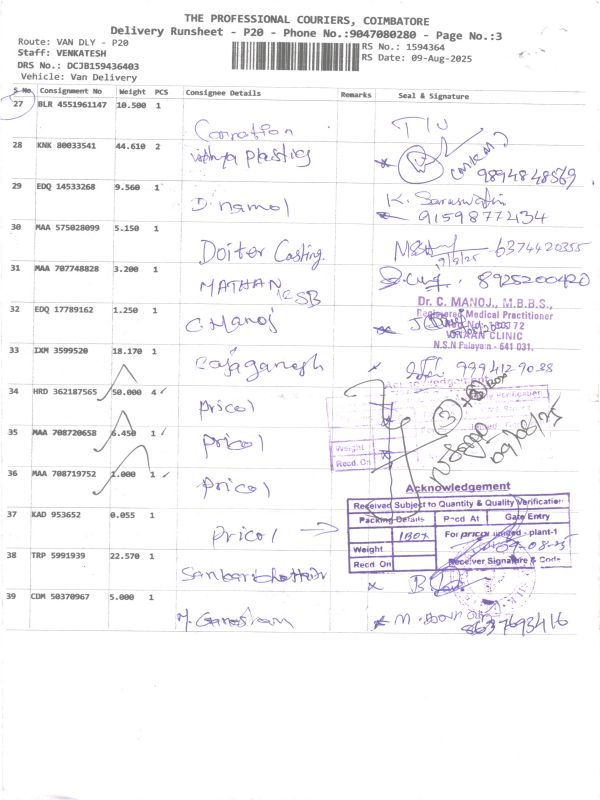 THE PROFESSIONAL COURIERS, COIMBATORE
Delivery Runsheet - P20 - Phone No.:9047080280 - Page No.:3
Route: VAN DLY - P20
Staff: VENKATESH
DRS No.: DCJB159436403
Vehicle: Van Delivery
RS No.: 1594364
RS Date: 09-Aug-2025
S No. Consignment No Weight PCS Consignee Details Remarks Seal & Signature
27 BLR 4551961147 10.500 1
28 KNK 80033541 44.610 2 Vidhya plastics 9894848569
29 EDQ 14533268 9.560 1 K. Saraswathi
9159877434
30 MAA 575028099 5.150 1 Doiter Casting. 6374420355
31 MAA 707748828 3.200 1 MATHAN KSB 8925200420
32 EDQ 17789162 1.250 1 C. Manoj
Dr. C. MANOJ., M.B.B.S.,
Registered Medical Practitioner
CLINIC
N.S.N Palayam - 641 031.
33 IXM 3599520 18.170 1 Rajaganesh 9994129038
34 HRD 362187565 50.000 4 Pricol
Acknowledgement
3
09/08/25
35 MAA 708720658 6.450 1 Pricol
Weight
Recd. On
36 MAA 708719752 1.000 1 Pricol
Acknowledgement
Received Subject to Quantity & Quality Verification
Packing Details Recd At Gate Entry
37 KAD 953652 0.055 1 Pricol
1 BOX For pricol limited - plant-1
Weight 09-08-25
Recd On Receiver Signature & Code
38 TRP 5991939 22.570 1
39 CDM 50370967 5.000 1 M. Ganesan
8637693416